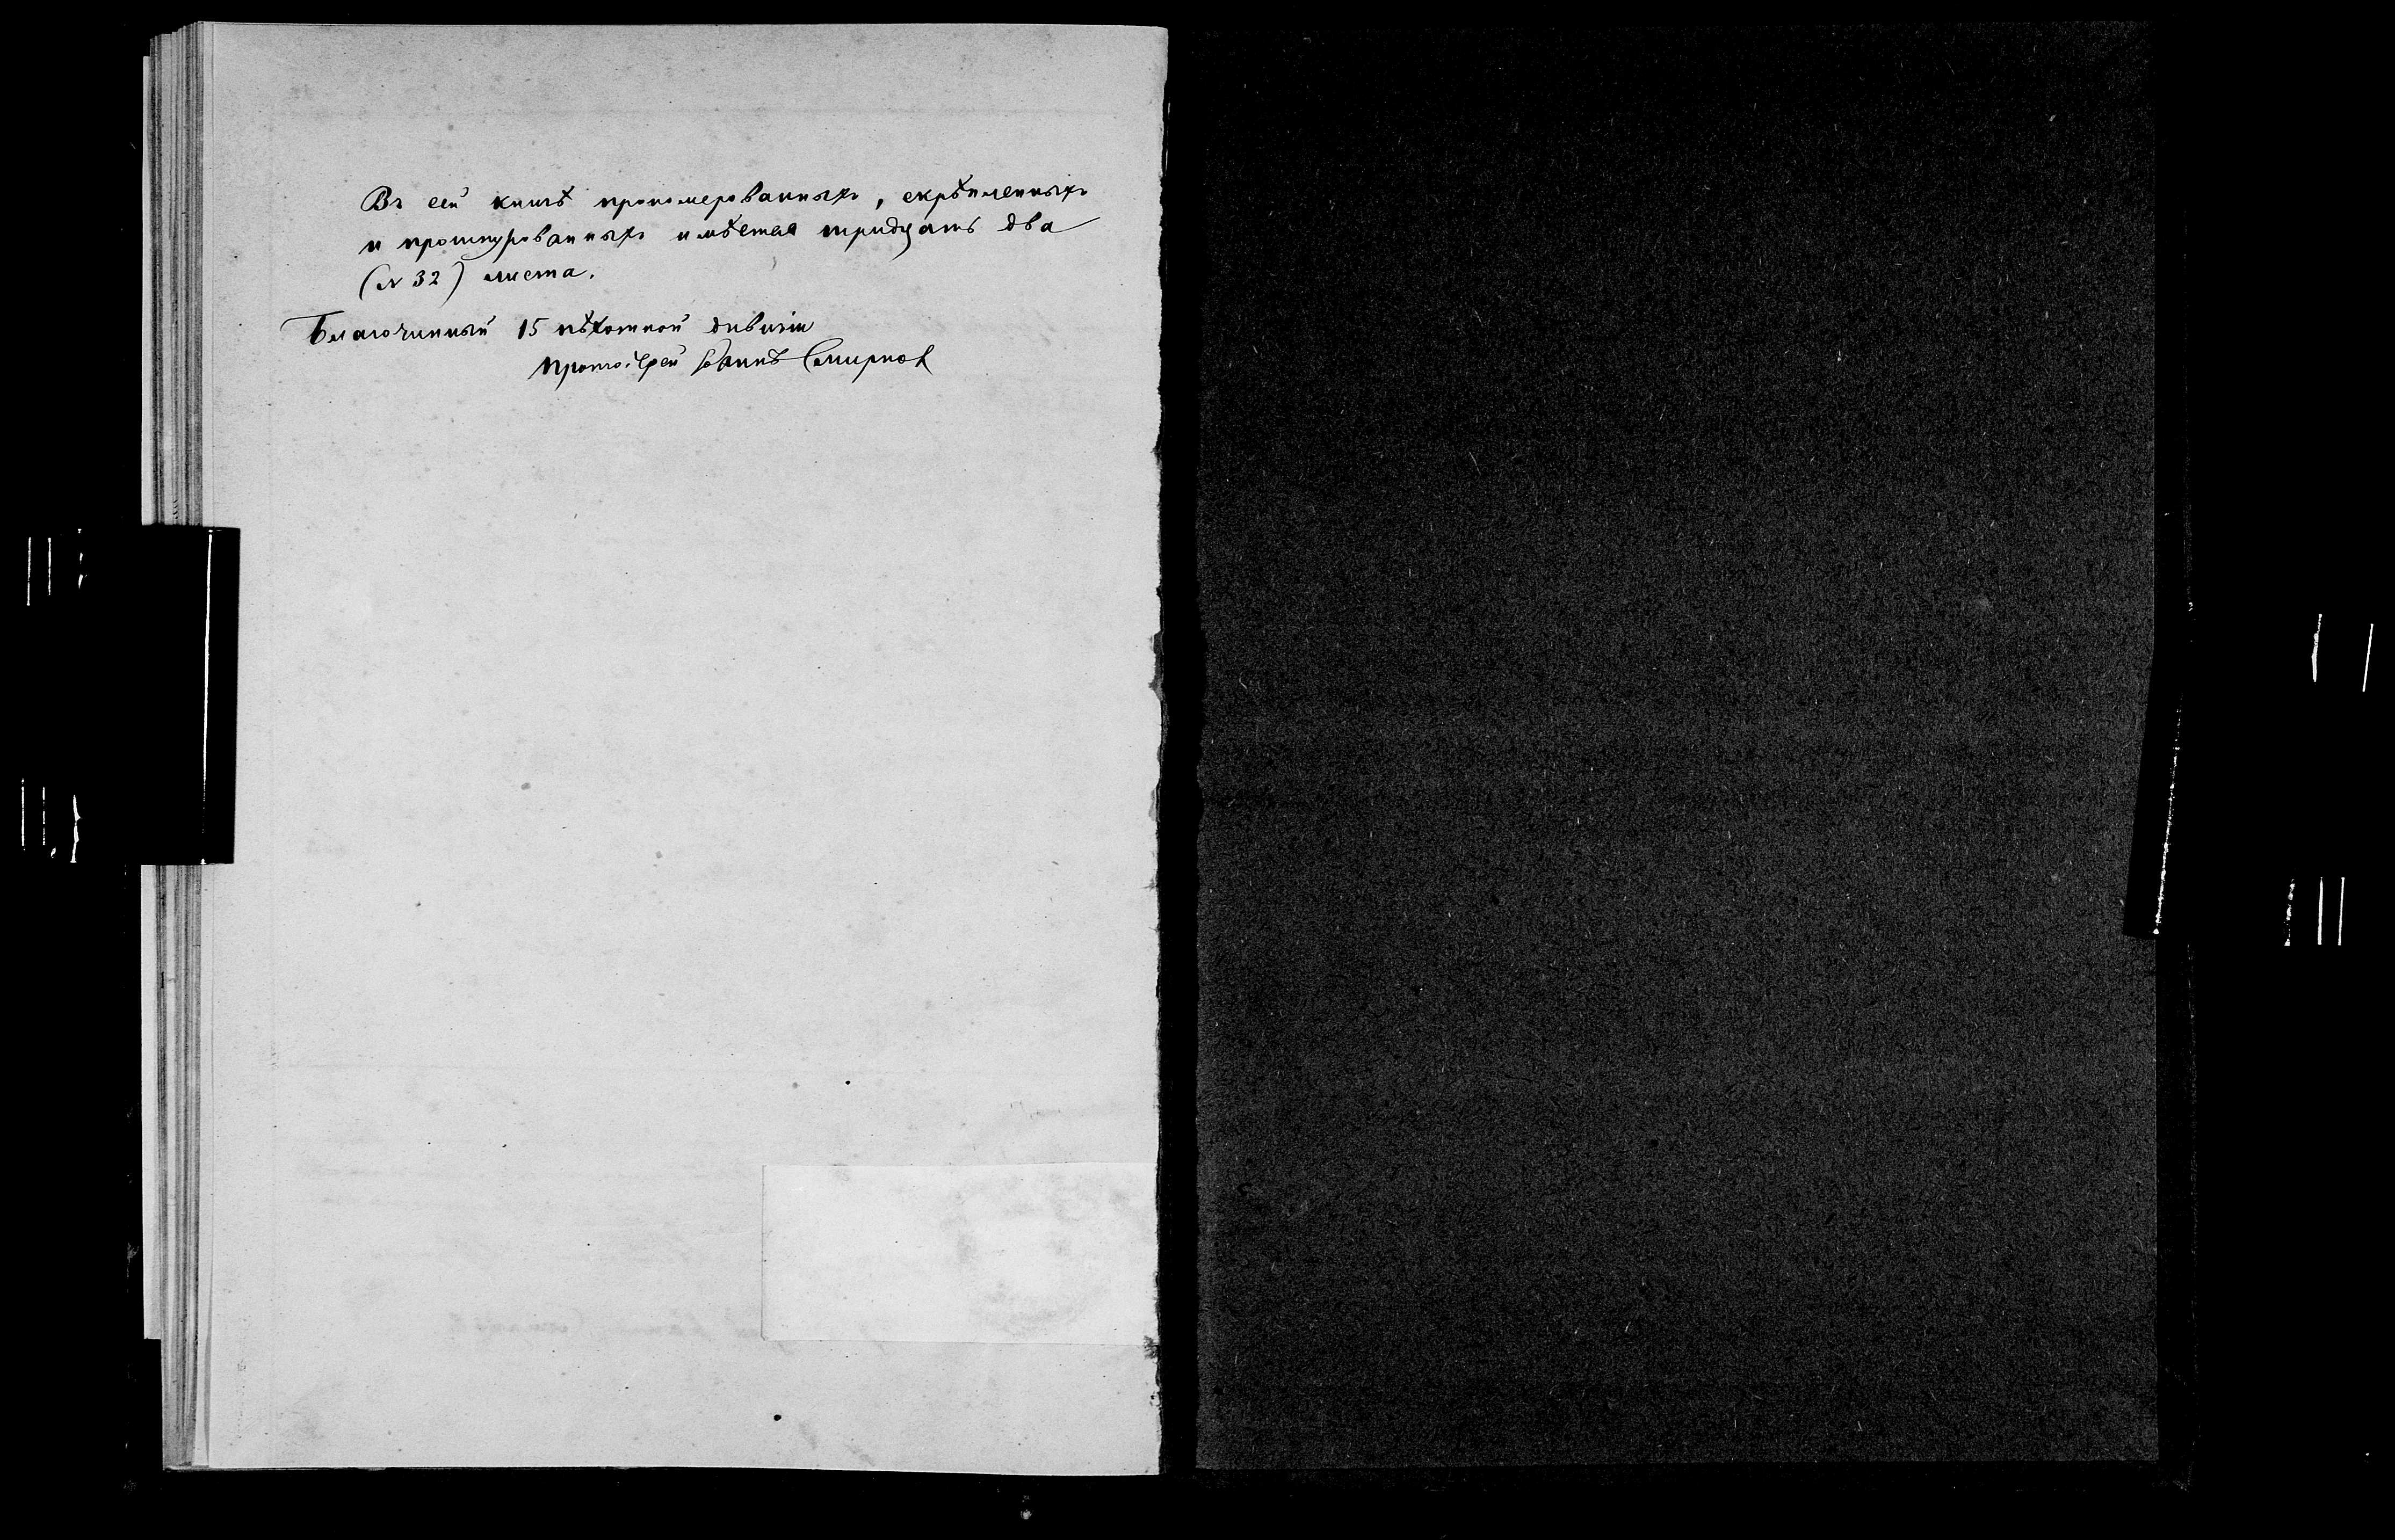 Въ сей книгѣ прономерованныхъ, скрѣпленныхъ
и прошнурованныхъ имѣется тридцать два
(№ 32) листа.
Благочинный 15 пѣхотной дивизіи
Протоіерей Іоаннъ Смирнов